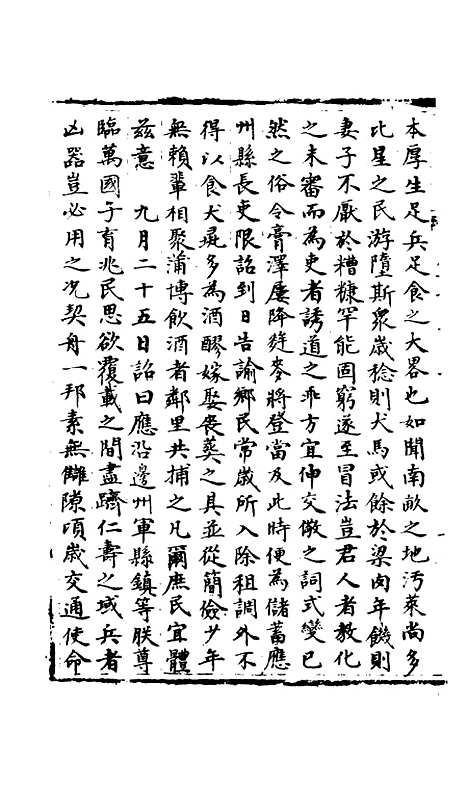 本厚生足兵足食之大畧也如聞南畝之地污萊尚多
比星之民游墮斯衆歲稔則犬馬或餘於粱肉年饑則
妻子不厭於糟糠罕能固窮遂至冒法豈君人者教化
之未審而為吏者誘道之乖方宜伸交儆之詞式變已
然之俗今膏澤屢降麰麥將登當及此時便為儲蓄應
州縣長吏限詔到日告諭鄉民常歲所入除租調外不
得以食犬彘多為酒醪嫁娶䘮葬之具並從簡儉少年
無賴輩相聚蒲博飲酒者鄰里共捕之凡爾庶民宜體
兹意　九月二十五日詔曰應沿邊州軍縣鎮等朕尊
臨萬國子育兆民思欲覆載之間盡躋仁壽之域兵者
凶器豈必用之况契丹一邦素無讎隙頃歲交通使命